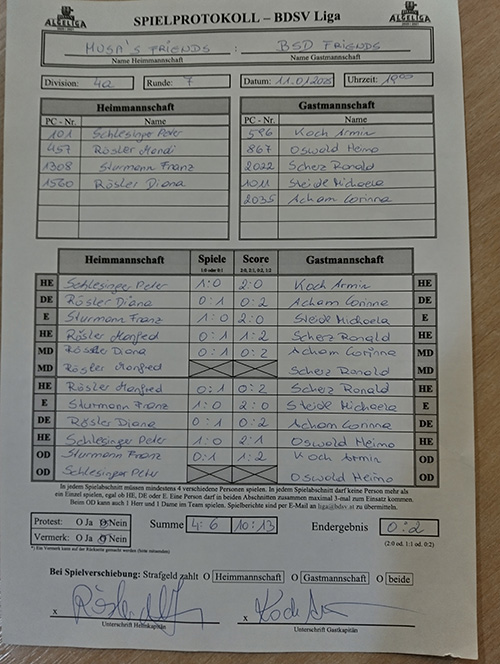 ALGELIGA SPIELPROTOKOLL – BDSV Liga ALGELIGA
MUSA'S FRIENDS : BSD FRIENDS
Name Heimmannschaft Name Gastmannschaft
Division: 4a Runde: 7 Datum: 11.01.2025 Uhrzeit: 19:00
Heimmannschaft Gastmannschaft
PC - Nr. Name PC - Nr. Name
101 Schlesinger Peter 596 Koch Armin
457 Rösler Mandi 867 Oswald Heimo
1308 Sturmann Franz 2022 Scherz Ronald
1560 Rösler Diana 1011 Steide Michaela
2035 Acham Corinna
Heimmannschaft Spiele Score Gastmannschaft
1:0 oder 0:1 2:0, 2:1, 0:2, 1:2
HE Schlesinger Peter 1:0 2:0 Koch Armin HE
DE Rösler Diana 0:1 0:2 Acham Corinna DE
E Sturmann Franz 1:0 2:0 Steide Michaela E
HE Rösler Manfred 0:1 1:2 Scherz Ronald HE
MD Rössler Diana 0:1 0:2 Acham Corinna MD
MD Rösler Manfred Scherz Ronald MD
HE Rösler Manfred 0:1 0:2 Scherz Ronald HE
E Sturmann Franz 1:0 2:0 Steide Michaela E
DE Rösler Diana 0:1 0:2 Acham Corinna DE
HE Schlesinger Peter 1:0 2:1 Oswald Heimo HE
OD Sturmann Franz 0:1 1:2 Koch Armin OD
OD Schlesinger Peter Oswald Heimo OD
In jedem Spielabschnitt müssen mindestens 4 verschiedene Personen spielen. In jedem Spielabschnitt darf keine Person mehr als
ein Einzel spielen, egal ob HE, DE oder E. Eine Person darf in beiden Abschnitten zusammen maximal 3-mal zum Einsatz kommen.
Beim OD kann auch 1 Herr und 1 Dame im Team spielen. Spielberichte sind per E-Mail an liga@bdsv.at zu übermitteln.
Protest: O Ja O Nein Summe 4:6 10:13 Endergebnis 0:2
Vermerk: O Ja O Nein (2:0 od. 1:1 od. 0:2)
*) Ein Vermerk kann auf der Rückseite gemacht werden (bitte ankreuzen)
Bei Spielverschiebung: Strafgeld zahlt O Heimmannschaft O Gastmannschaft O beide
x x
Unterschrift Heimkapitän Unterschrift Gastkapitän